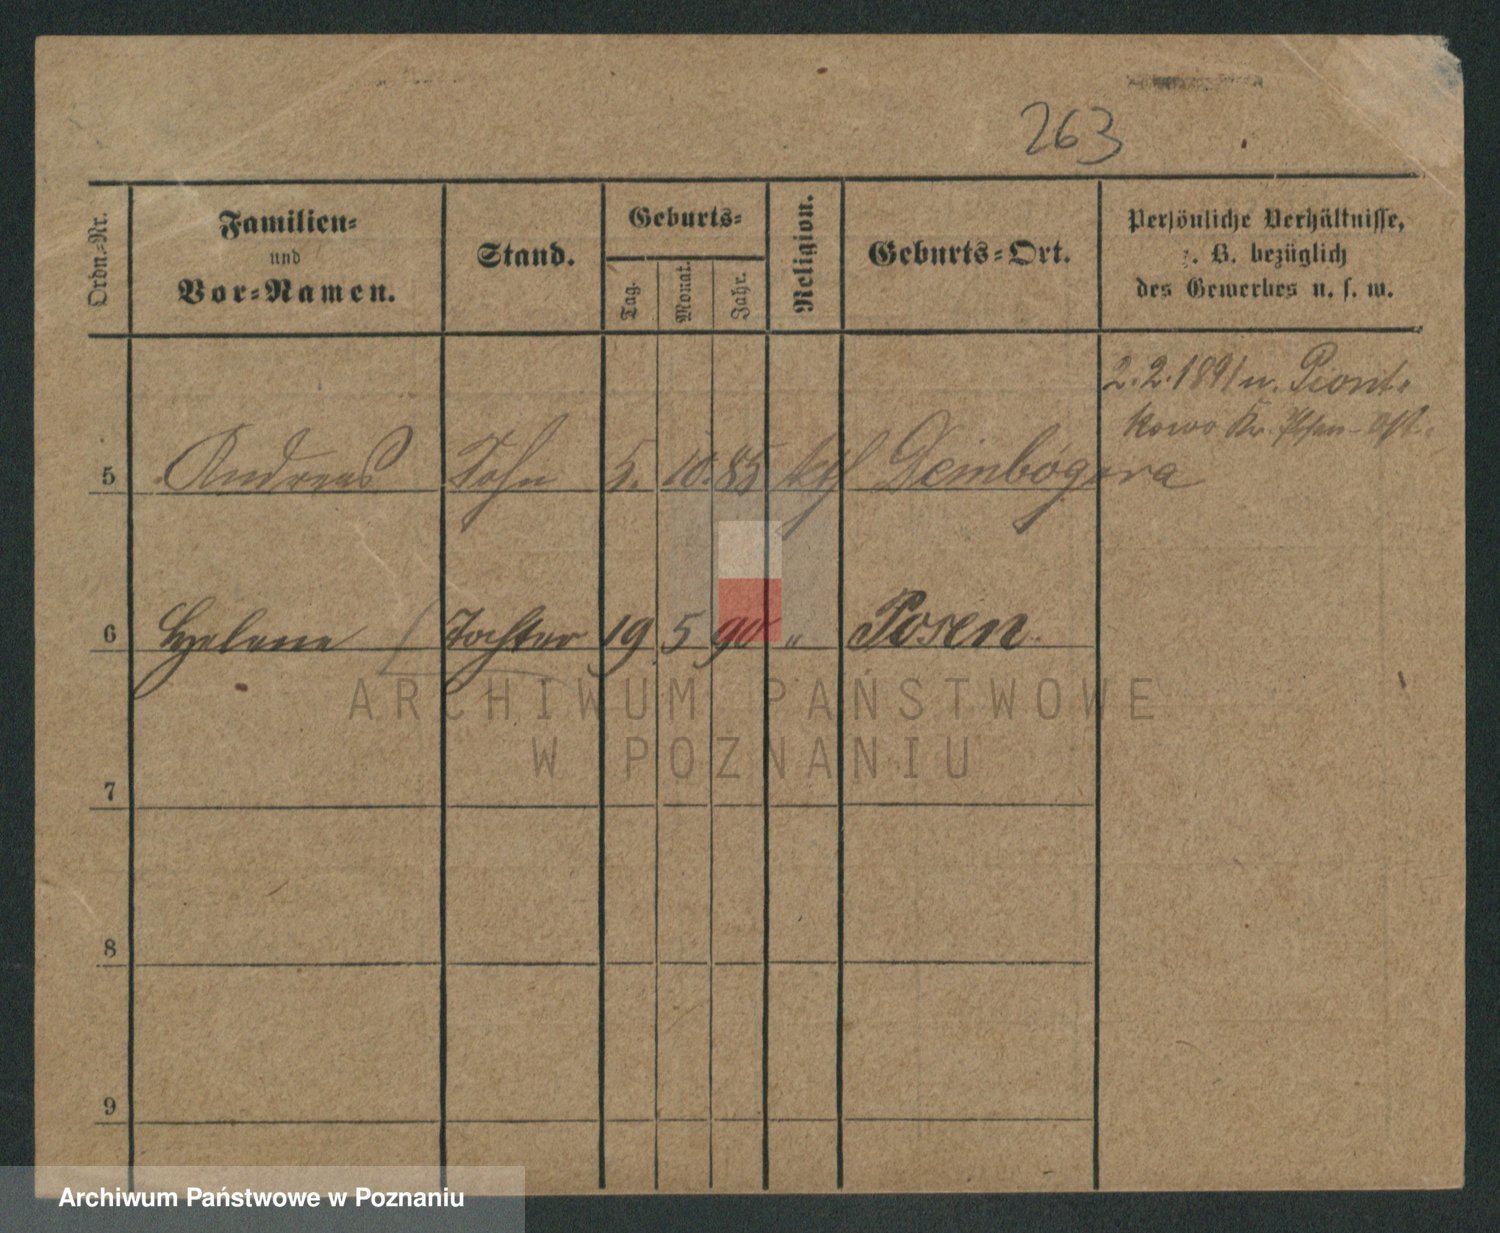 263
Ordn.-Nr.
Familien-
und
Vor-Namen.
Stand.
Geburts-
Tag.
Monat.
Jahr.
Religion.
Geburts-Ort.
Persönliche Verhältnisse,
z. B. bezüglich
des Gewerbes u. s. w.
2. 2. 1891 n. Piont-
kowo Kr. Posen-Ost.
5 Andreas Sohn 5. 10. 85 ktl Dembogora
6 Helene Tochter 19 5 90 " Posen
7
8
9
ARCHIWUM PAŃSTWOWE
W POZNANIU
Archiwum Państwowe w Poznaniu